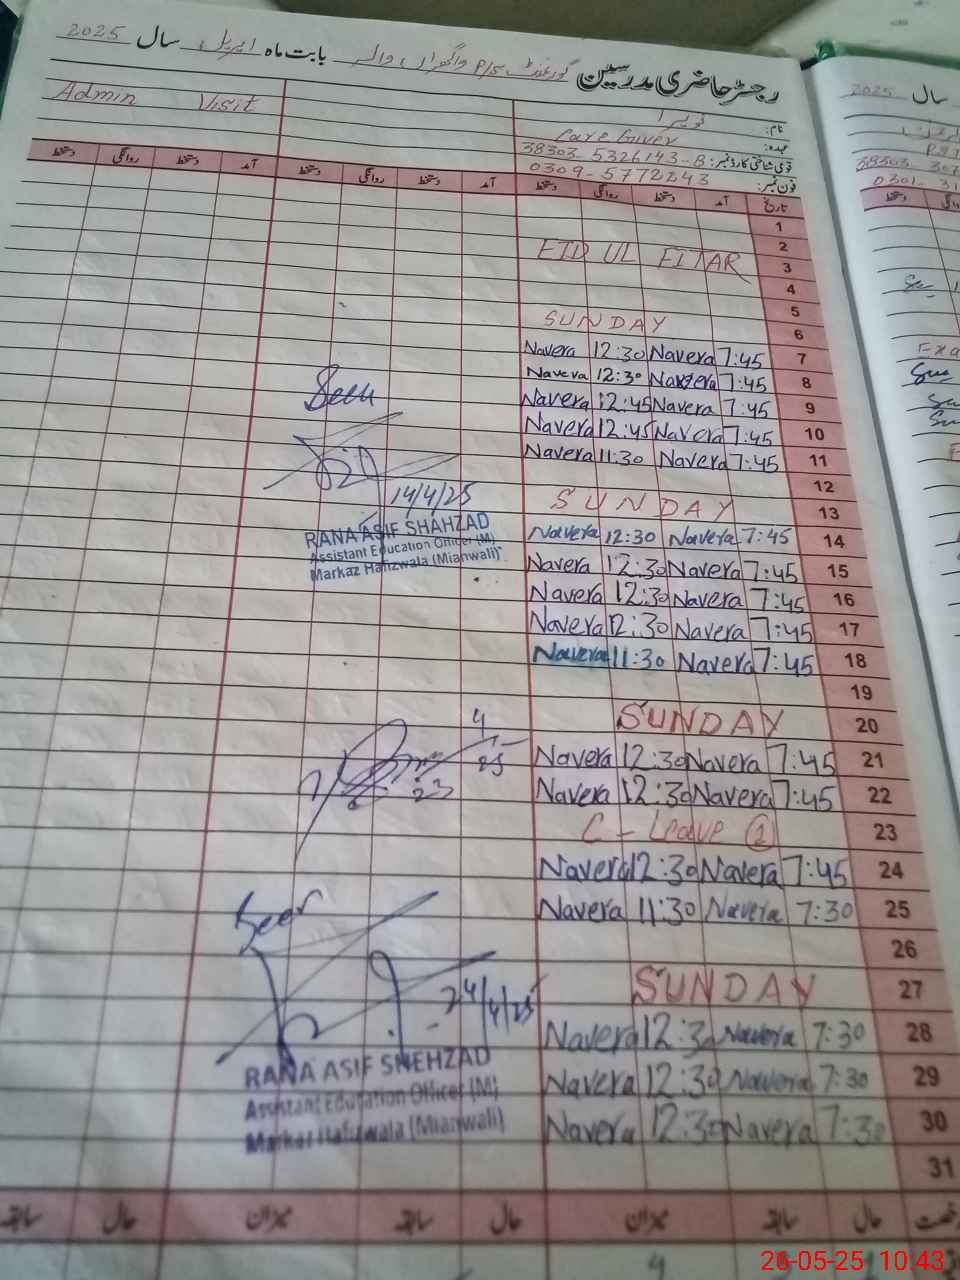 رجسٹر حاضری مدرسین گورنمنٹ P/S واگھرانوالہ بابت ماہ اپریل سال 2025
نام: نویرا
عہدہ: Care Giver
قومی شناختی کارڈ نمبر: 38303-5326143-8
فون نمبر: 0309-5772843
Admin Visit
تاریخ آمد دستخط روانگی دستخط آمد دستخط روانگی دستخط آمد دستخط روانگی دستخط
1
2
EID UL FITAR
3
4
5
SUNDAY
6
Navera 12:30 Navera 7:45 7
Navera 12:30 Navera 7:45 8
Navera 12:45 Navera 7:45 9
Navera 12:45 Navera 7:45 10
Navera 11:30 Navera 7:45 11
12
SUNDAY 13
Navera 12:30 Navera 7:45 14
Navera 12:30 Navera 7:45 15
Navera 12:30 Navera 7:45 16
Navera 12:30 Navera 7:45 17
Navera 11:30 Navera 7:45 18
19
SUNDAY 20
Navera 12:30 Navera 7:45 21
Navera 12:30 Navera 7:45 22
C - Leave (1) 23
Navera 12:30 Navera 7:45 24
Navera 11:30 Navera 7:30 25
26
SUNDAY 27
Navera 12:30 Navera 7:30 28
Navera 12:30 Navera 7:30 29
Navera 12:30 Navera 7:30 30
31
Seen
14/4/25
RANA ASIF SHAHZAD
Assistant Education Officer (M)
Markaz Hafizwala (Mianwali)
Seen
24/4/25
RANA ASIF SHEHZAD
Assistant Education Officer (M)
Markaz Hafizwala (Mianwali)
رخصت حال سابقہ میزان حال سابقہ میزان حال سابقہ
سال 2025
26-05-25 10:43